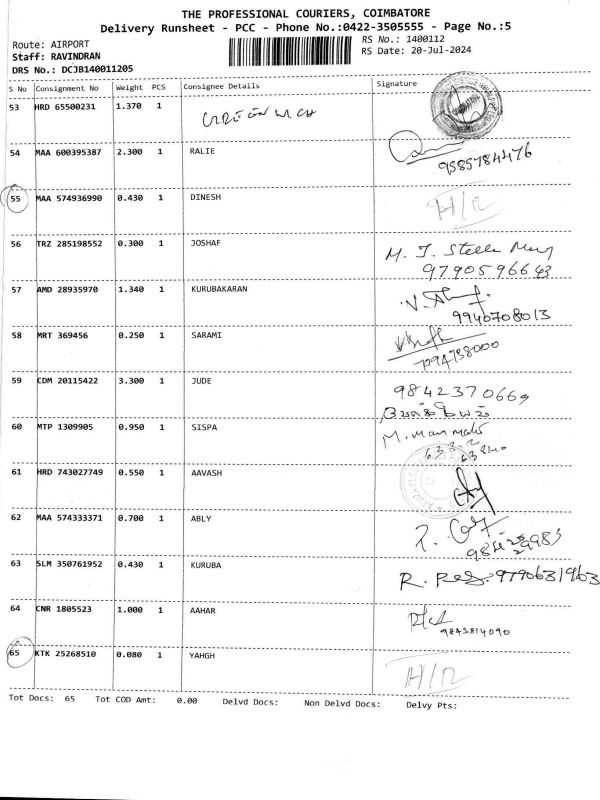 THE PROFESSIONAL COURIERS, COIMBATORE
Delivery Runsheet - PCC - Phone No.:0422-3505555 - Page No.:5
Route: AIRPORT
RS No.: 1400112
Staff: RAVINDRAN
RS Date: 20-Jul-2024
DRS No.: DCJB140011205
S No Consignment No Weight PCS Consignee Details Signature
53 HRD 65500231 1.370 1
54 MAA 600395387 2.300 1 RALIE
9585784476
55 MAA 574936990 0.430 1 DINESH H/R
56 TRZ 285198552 0.300 1 JOSHAF M. J. Stella Mary
9790596643
57 AMD 28935970 1.340 1 KURUBAKARAN
9940708013
58 MRT 369456 0.250 1 SARAMI
7094738000
59 CDM 20115422 3.300 1 JUDE 9842370669
60 MTP 1309905 0.950 1 SISPA
61 HRD 743027749 0.550 1 AAVASH
62 MAA 574333371 0.700 1 ABLY
63 SLM 350761952 0.430 1 KURUBA 9790631963
64 CNR 1805523 1.000 1 AAHAR
9843814090
65 KTK 25268510 0.080 1 YAHGH H/R
Tot Docs: 65 Tot COD Amt: 0.00 Delvd Docs: Non Delvd Docs: Delvy Pts: